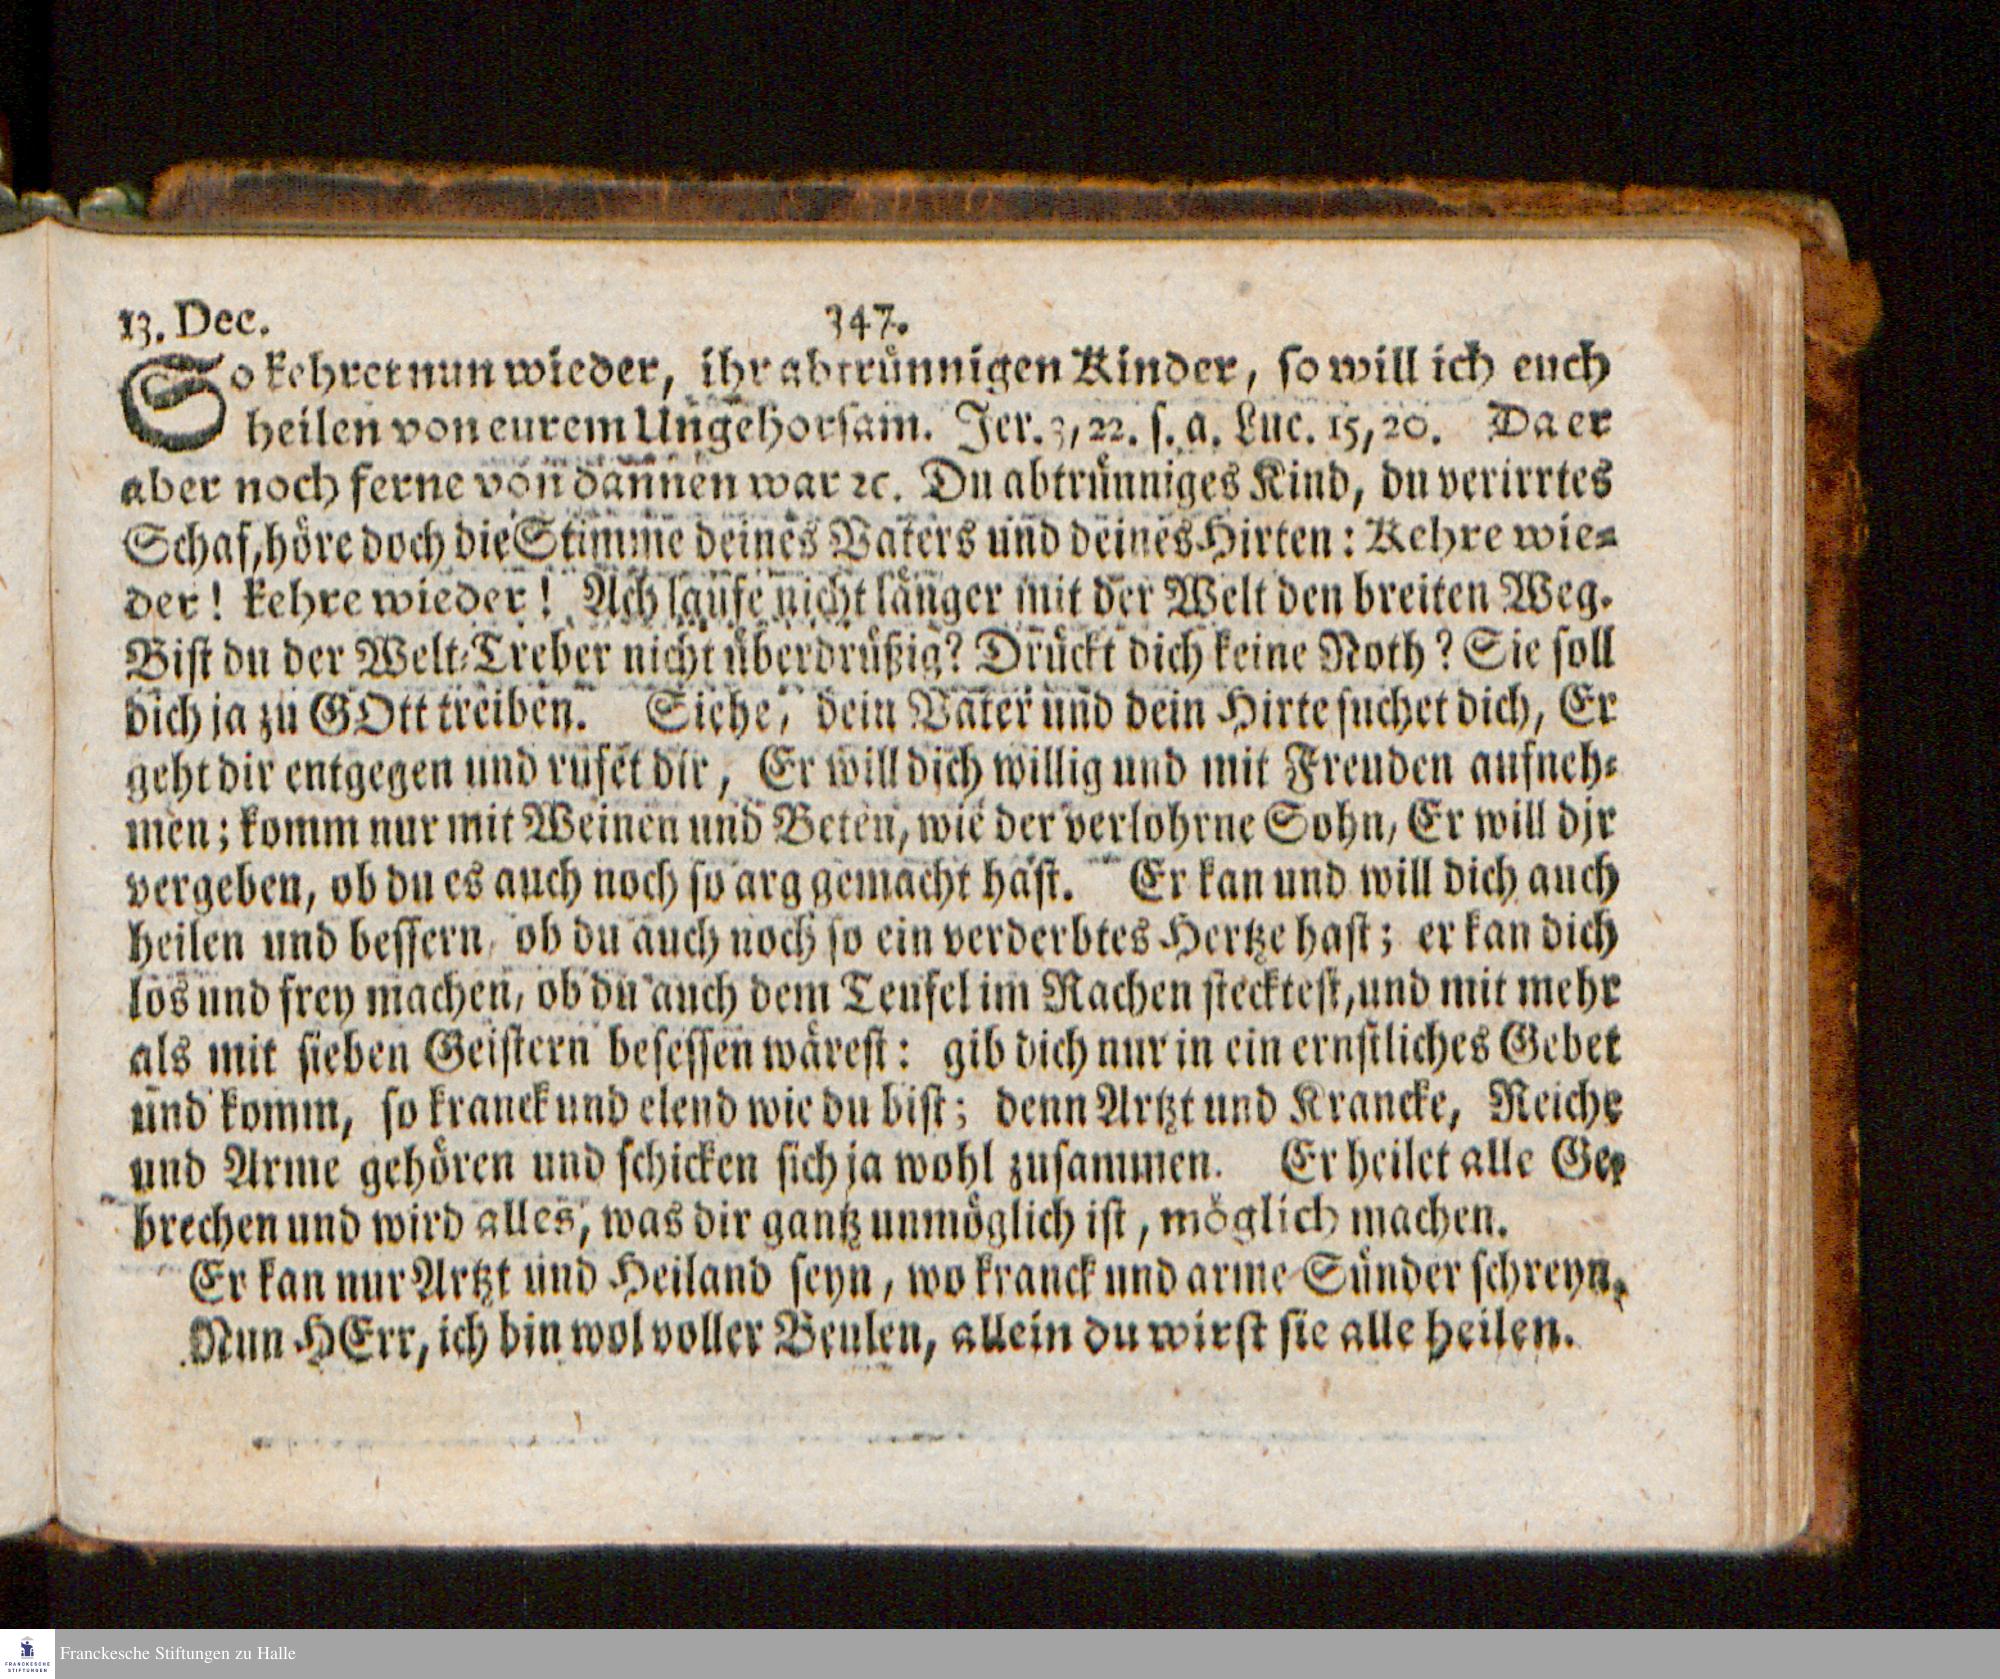 13. Dec. 347.
So kehret nun wieder, ihr abtrünnigen Kinder, so will ich euch
heilen von eurem Ungehorsam. Jer. 3, 22. s. a. Luc. 15, 20. Da er
aber noch ferne von dannen war ꝛc. Du abtrünniges Kind, du verirrtes
Schaf, höre doch die Stimme deines Vaters und deines Hirten: Kehre wie-
der! kehre wieder! Ach laufe nicht länger mit der Welt den breiten Weg.
Bist du der Welt-Treber nicht überdrüßig? Drückt dich keine Noth? Sie soll
dich ja zu GOtt treiben. Siehe, dein Vater und dein Hirte suchet dich, Er
geht dir entgegen und rufet dir, Er will dich willig und mit Freuden aufneh-
men; komm nur mit Weinen und Beten, wie der verlohrne Sohn, Er will dir
vergeben, ob du es auch noch so arg gemacht hast. Er kan und will dich auch
heilen und bessern, ob du auch noch so ein verderbtes Hertze hast; er kan dich
los und frey machen, ob du auch dem Teufel im Rachen stecktest, und mit mehr
als mit sieben Geistern besessen wärest: gib dich nur in ein ernstliches Gebet
und komm, so kranck und elend wie du bist; denn Artzt und Krancke, Reiche
und Arme gehören und schicken sich ja wohl zusammen. Er heilet alle Ge-
brechen und wird alles, was dir gantz unmöglich ist, möglich machen.
Er kan nur Artzt und Heiland seyn, wo kranck und arme Sünder schreyn.
Nun HErr, ich bin wol voller Beulen, allein du wirst sie alle heilen.
FRANCKESCHE
STIFTUNGEN
Franckesche Stiftungen zu Halle